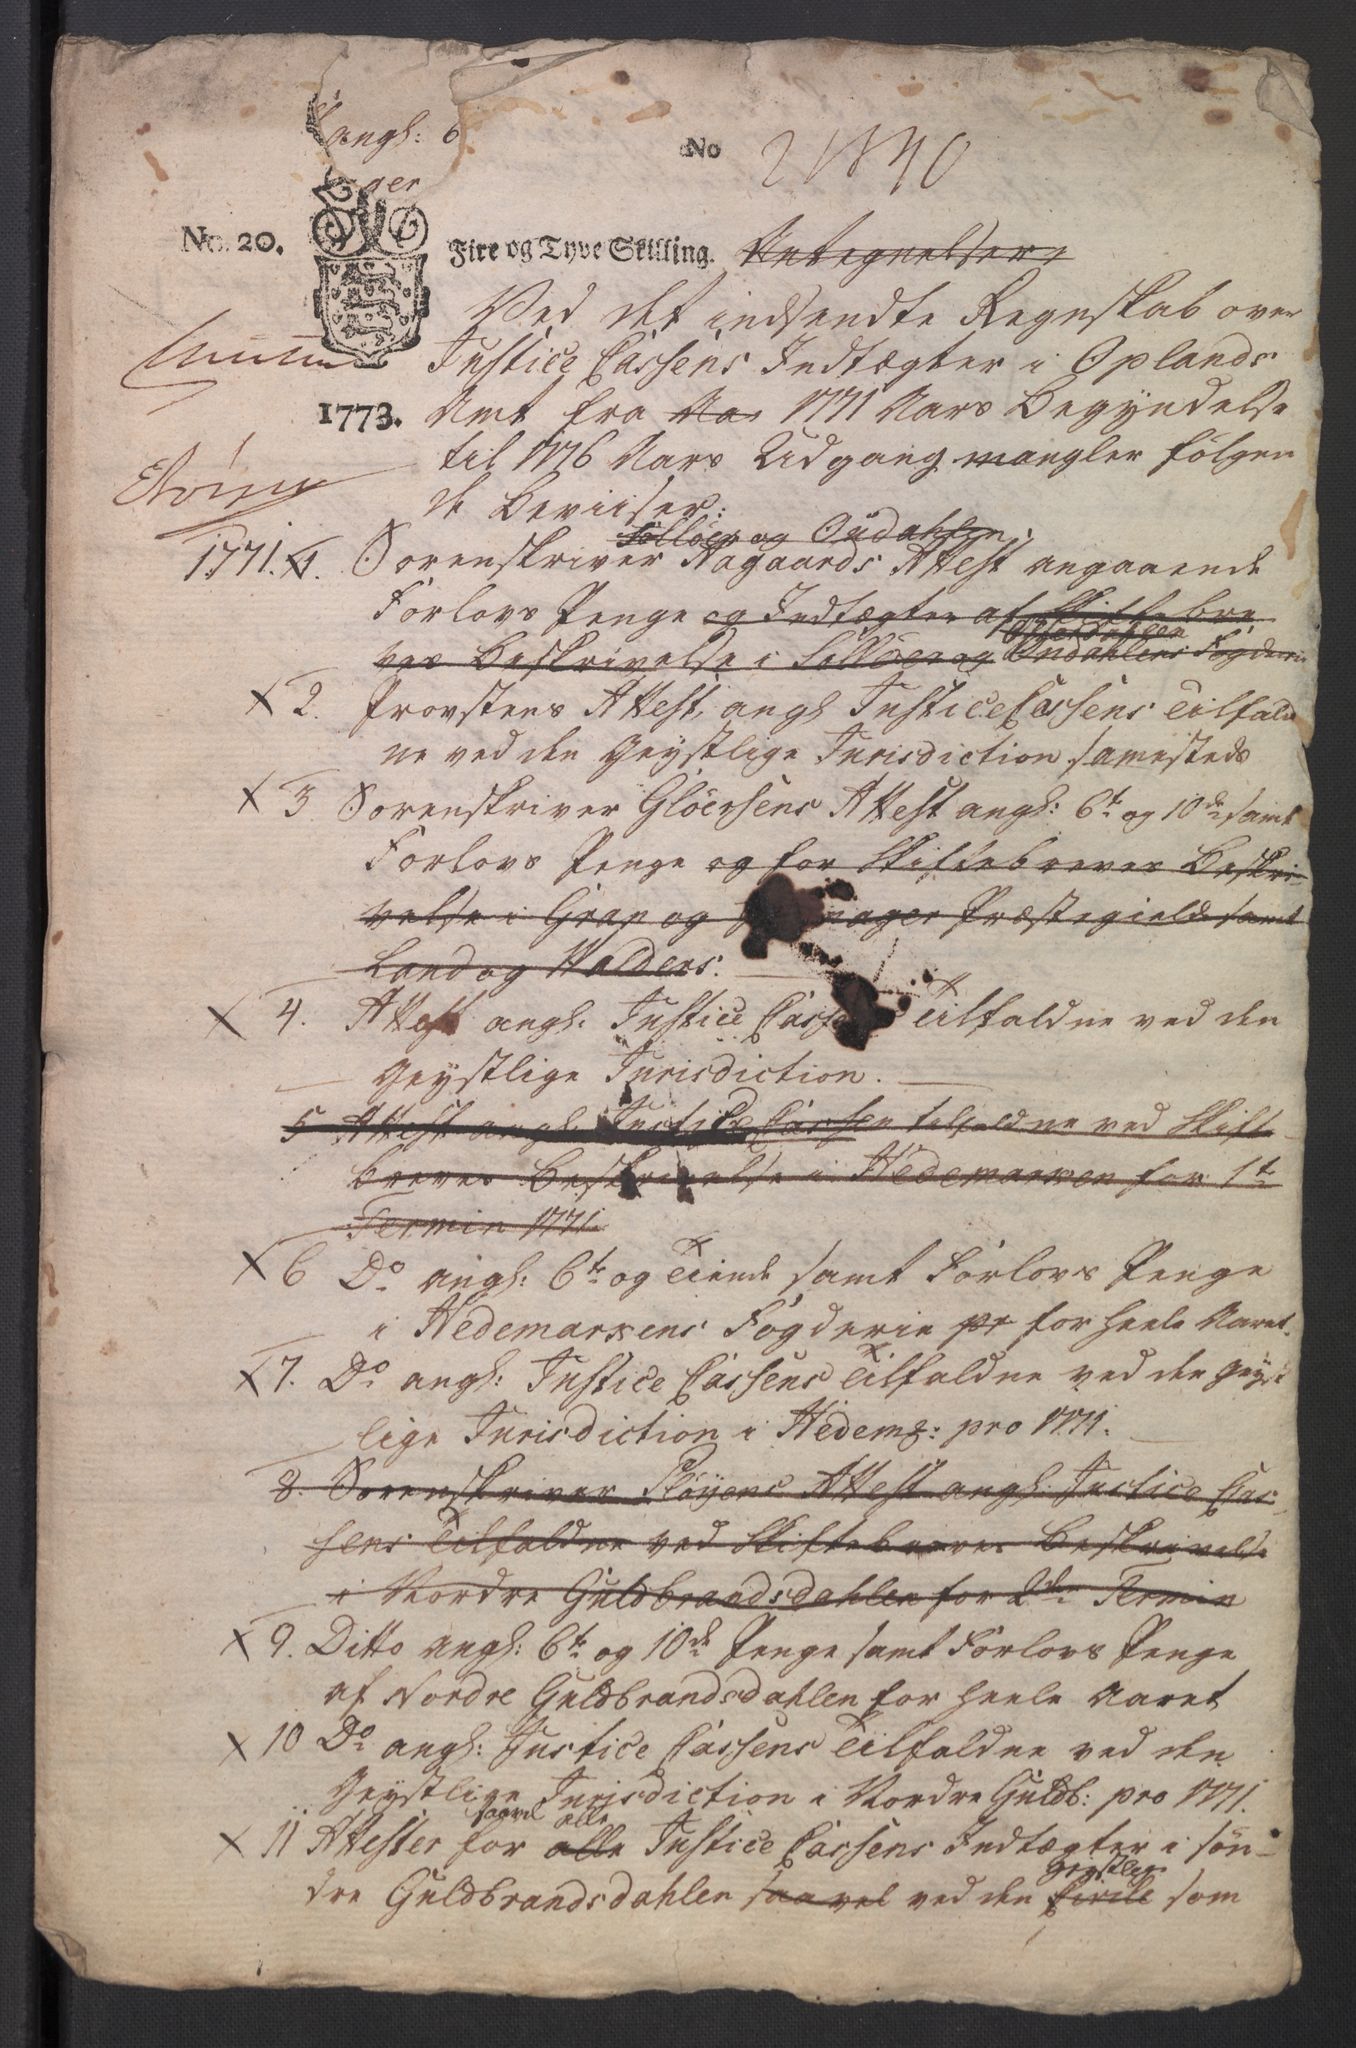 angh: 6
ger
No 21840
No. 20. Fire og Tyve Skilling. Antegnelser
Ved det indsendte Regnskab over
Justice Cassens Indtægter i Oplands
1773. Amt fra Aar 1771 Aars Begyndelse
til 1776 Aars Udgang mangler følgen
de Beviiser:
Solløer og Oudahlen
1771. 1. Sorenskriver Aagaards Attest angaaende
Forlovs Penge og Indtægter af Skiftebre
Østerdahlen
ves Beskrivelse i Solløer og Oudahlens Fogderie
x 2. Provstens Attest angh Justice Cassens Tilfald
ne ved den Geystlige Jurisdiction samesteds
x 3 Sorenskriver Gløersens Attest angh: 6te og 10de samt
Forlovs Penge og for Skiftebreves Beskri-
velse i Gran og Præstegield samt
Land og Walders.
x 4. Attest angh: Justice Cassens Tilfaldne ved den
Geystlige Jurisdiction.
5 Attest angh: Justice Cassen tilfaldne ved Skift
breves Beskrivelse i Hedemarken for 1te
Termin 1771.
x 6 Do angh: 6te og Tiende samt Forlovs Penge
i Hedemarkens Fogderie pr for heele Aaret.
x 7. Do angh: Justice Cassens Tilfaldne ved den Geyst
lige Jurisdiction i Hedemk: pro 1771.
8. Sorenskriver Pløyens Attest angh. Justice Cas-
sens Tilfaldne ved Skiftebreves Beskrivelse
i Nordre Guldbrandsdahlen for 2den Termin
x 9. Ditto angh: 6te og 10de Penge samt Forlovs Penge
af Nordre Guldbrandsdahlen for heele Aaret
x 10 Do angh: Justice Cassens Tilfaldne ved den
Geystlige Jurisdiction i Nordre Guldb: pro 1771.
saavel alle
x 11 Attester for alle Justice Cassens Indtægter i Søn-
geystlige
dre Guldbrandsdahlen saavel ved den Civile som